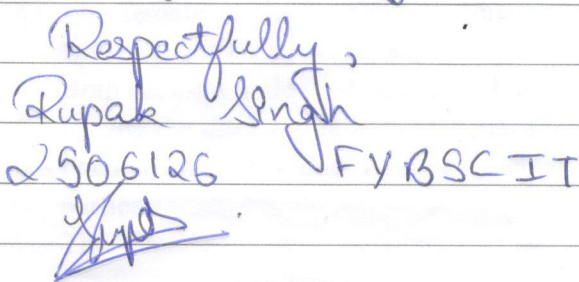 Respectfully,
Rupak Singh
2506126 FYBSCIT